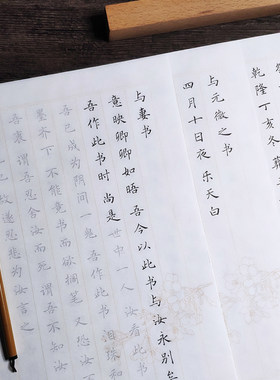 乾隆丁亥冬
与元微之书
四月十日夜 乐天白
与妻书
意映卿卿如晤 吾今以此书与汝永别矣
吾作此书时 尚是世中一人 汝看此书
吾已成为阴间一鬼 吾作此书 泪珠和
不能竟书而欲搁笔 又恐汝
吾衷 谓吾忍舍汝而死 谓吾不知汝
故遂忍悲为汝言之